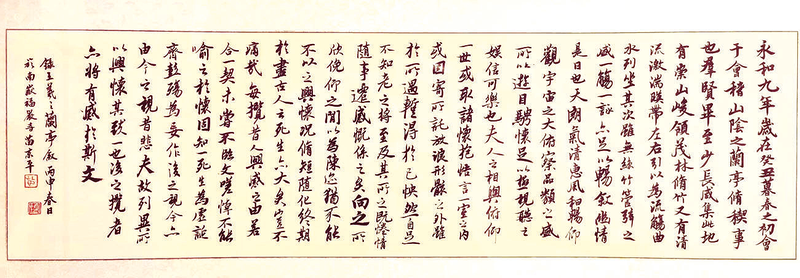 永和九年歲在癸丑暮春之初會
于會稽山陰之蘭亭脩稧事
也群賢畢至少長咸集此地
有崇山峻領茂林脩竹又有清
流激湍暎帶左右引以為流觴曲
水列坐其次雖無絲竹管弦之
盛一觴一詠亦足以暢敘幽情
是日也天朗氣清惠風和暢仰
觀宇宙之大俯察品類之盛
所以遊目騁懷足以極視聽之
娛信可樂也夫人之相與俯仰
一世或取諸懷抱悟言一室之內
或因寄所託放浪形骸之外雖
於所遇暫得於己快然自足
不知老之將至及其所之既惓情
隨事遷感慨係之矣向之所
欣俛仰之閒以為陳迹猶不能
不以之興懷況脩短隨化終期
於盡古人云死生亦大矣豈不
痛哉每攬昔人興感之由若
合一契未嘗不臨文嗟悼不能
喻之於懷固知一死生為虛誕
齊彭殤為妄作後之視今亦
由今之視昔悲夫故列異所
以興懷其致一也後之攬者
亦將有感於斯文
錄王羲之蘭亭敘丙申春日
於南嶽福嚴寺